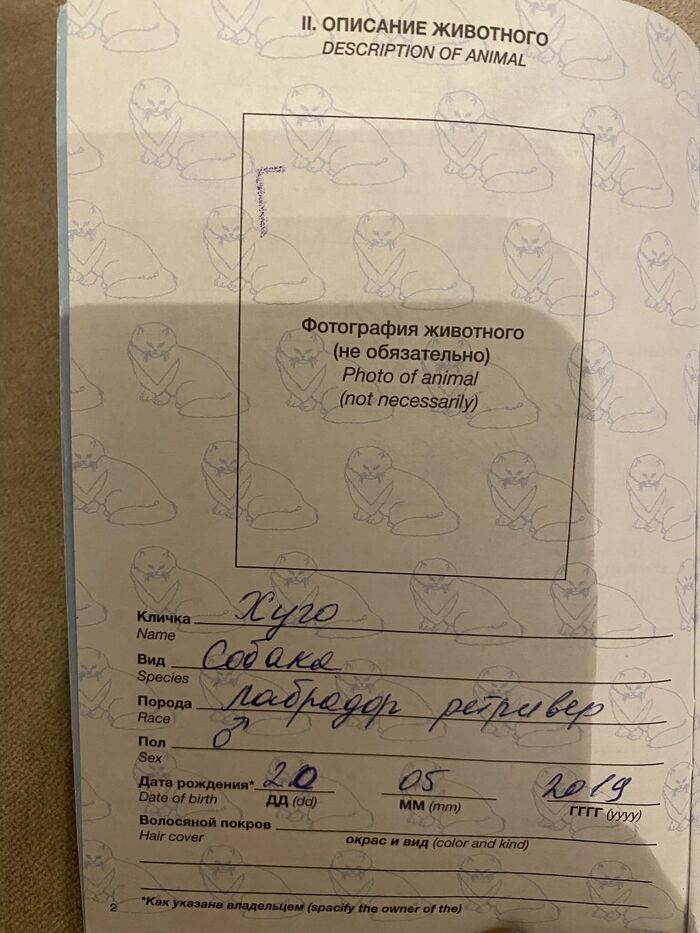 II. ОПИСАНИЕ ЖИВОТНОГО
DESCRIPTION OF ANIMAL
Фотография животного
(не обязательно)
Photo of animal
(not necessarily)
Кличка Хуго
Name
Вид Собака
Species
Порода лабрадор ретривер
Race
Пол ♂
Sex
Дата рождения* 20 05 2019
Date of birth ДД (dd) ММ (mm) ГГГГ (yyyy)
Волосяной покров
Hair cover окрас и вид (color and kind)
*Как указана владельцем (spacify the owner of the)
2